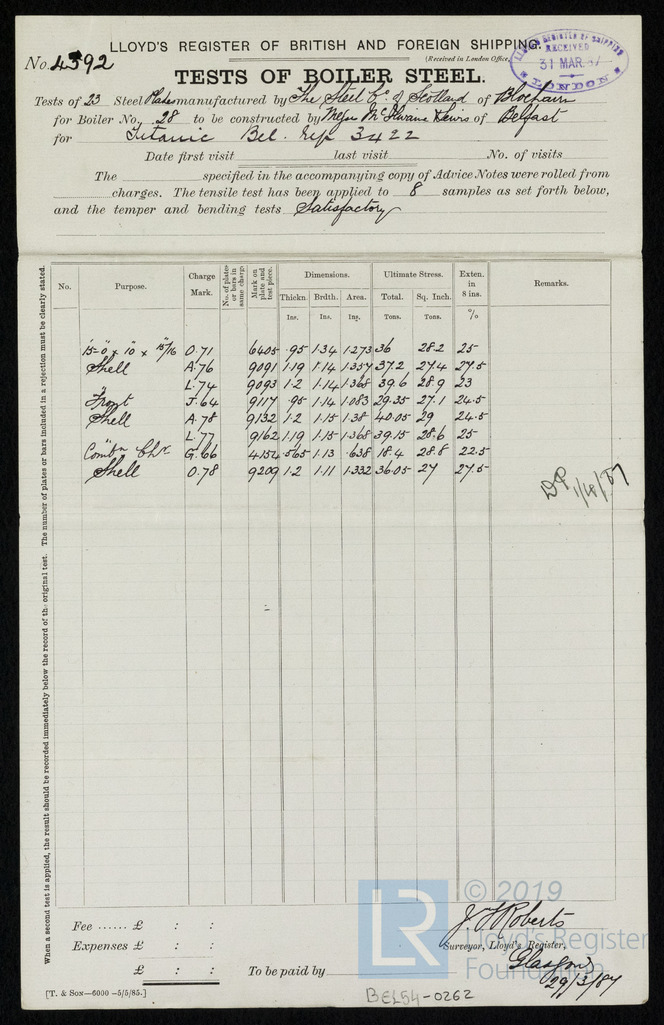 LLOYD'S REGISTER OF BRITISH AND FOREIGN SHIPPING.
No. 4592
(Received in London Office,
LLOYDS REGISTER OF SHIPPING
RECEIVED
31 MAR. 87
LONDON
TESTS OF BOILER STEEL.
Tests of 23 Steel Plates manufactured by The Steel Co. of Scotland of Blochairn
for Boiler No. 28 to be constructed by Messrs McIlwaine & Lewis of Belfast
for Titanic Bel. Rep 3422
Date first visit last visit No. of visits
The specified in the accompanying copy of Advice Notes were rolled from
charges. The tensile test has been applied to 8 samples as set forth below,
and the temper and bending tests Satisfactory
When a second test is applied, the result should be recorded immediately below the record of the original test. The number of plates or bars included in a rejection must be clearly stated.
No. Purpose. Charge Mark. No. of plates or bars in same charge. Mark on plate and test piece. Dimensions. Ultimate Stress. Exten. in 8 ins. Remarks.
Thickn. Brdth. Area. Total. Sq. Inch.
Ins. Ins. Ins. Tons. Tons. %
15'-0" x 10" x 15/16 O.71 6405 .95 1.34 1.273 36 28.2 25
Shell A.76 9091 1.19 1.14 1.357 37.2 27.4 27.5
" L.74 9093 1.2 1.14 1.368 39.6 28.9 23
Front J.64 9117 .95 1.14 1.083 29.35 27.1 24.5
Shell A.78 9132 1.2 1.15 1.38 40.05 29 24.5
" L.77 9162 1.19 1.15 1.368 39.15 28.6 25
Combn Chr G.66 4154 .565 1.13 .638 18.4 28.8 22.5
Shell O.78 9209 1.2 1.11 1.332 36.05 27 27.5
Fee ...... £ : :
Expenses £ : :
£ : :
To be paid by
J. F. Roberts
Surveyor, Lloyd's Register,
Glasgow
29/3/87
[T. & Son—6000 —5/5/85.]
BEL54-0262
LR
© 2019
Lloyd's Register
Foundation